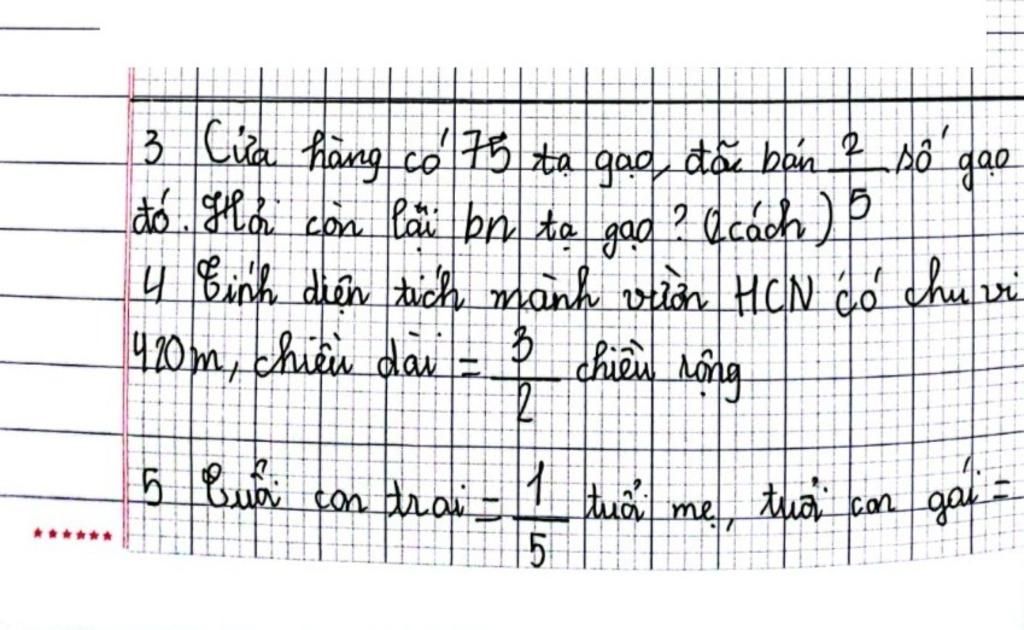 3 Cửa hàng có 75 tạ gạo, đã bán 2/5 số gạo
đó. Hỏi còn lại bn tạ gạo? (2 cách)
4 Tính diện tích mảnh vườn HCN có chu vi
420m, chiều dài = 3/2 chiều rộng
5 Tuổi con trai = 1/5 tuổi mẹ, tuổi con gái =